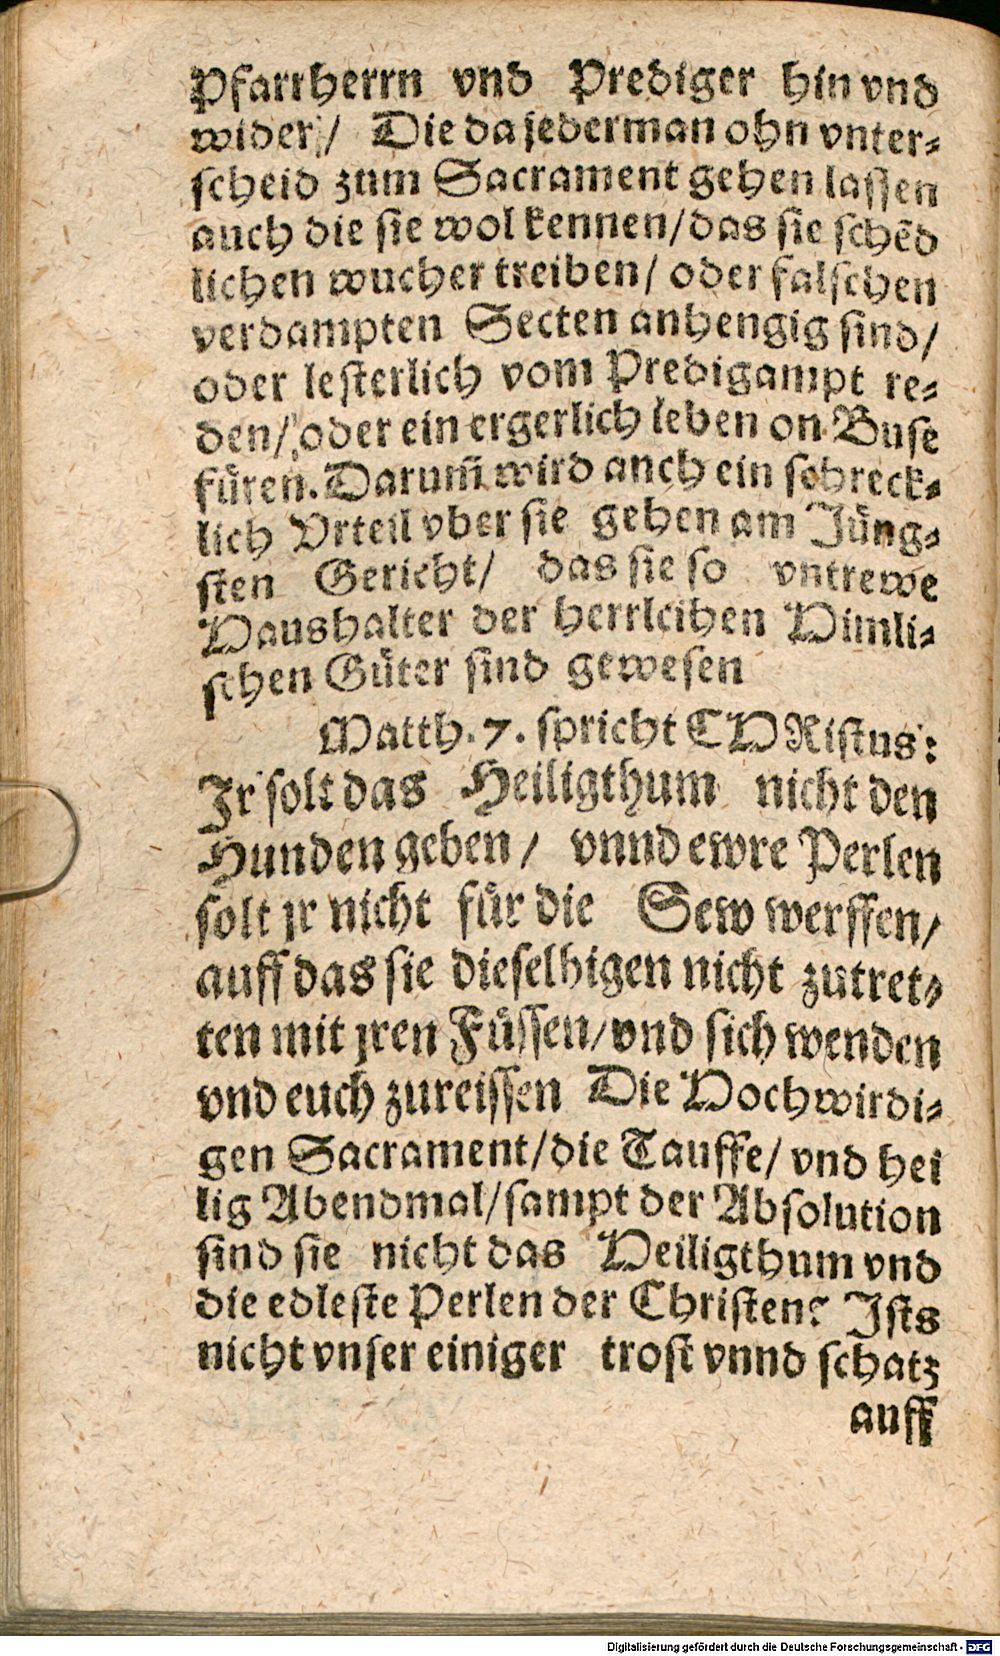 Pfarrherrn vnd Prediger hin vnd
wider / Die da jederman ohn vnter⸗
ſcheid zum Sacrament gehen laſſen
auch die ſie wol kennen/das ſie ſchẽd
lichen wucher treiben/ oder falſchen
verdampten Secten anhengig ſind/
oder leſterlich vom Predigampt re⸗
den/ oder ein ergerlich leben on Buſe
fuͤren. Darum̃ wird anch ein ſchreck⸗
lich Vrteil vber ſie gehen am Juͤng⸗
ſten Gericht/ das ſie ſo vntrewe
Haushalter der herrlcihen Himli⸗
ſchen Guͤter ſind geweſen
Matth. 7. ſpricht CHRiſtus:
Jr ſolt das Heiligthum nicht den
Hunden geben / vnnd ewre Perlen
ſolt jr nicht fuͤr die Sew werffen/
auff das ſie dieſelbigen nicht zutret⸗
ten mit jren Fuͤſſen/vnd ſich wenden
vnd euch zureiſſen Die Hochwirdi⸗
gen Sacrament/die Tauffe/ vnd hei
lig Abendmal/ſampt der Abſolution
ſind ſie nicht das Heiligthum vnd
die edleſte Perlen der Chriſten? Jſts
nicht vnſer einiger troſt vnnd ſchatz
auff
Digitalisierung gefördert durch die Deutsche Forschungsgemeinschaft - DFG